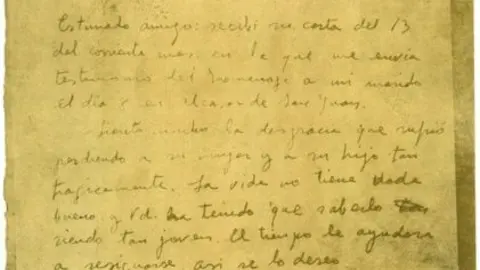 Estimado amigo: recibí su carta del 13
del corriente mes, en la que me envia
testimonio del homenaje a mi marido
el día 8 en el casar de San Juan.
Siento mucho la desgracia que sufrió
perdiendo a su mujer y a su hijo tan
tragicamente. La vida no tiene nada
bueno y Vd. ha tenido que saberlo
siendo tan joven. El tiempo le ayudara
a resignarse asi se lo deseo